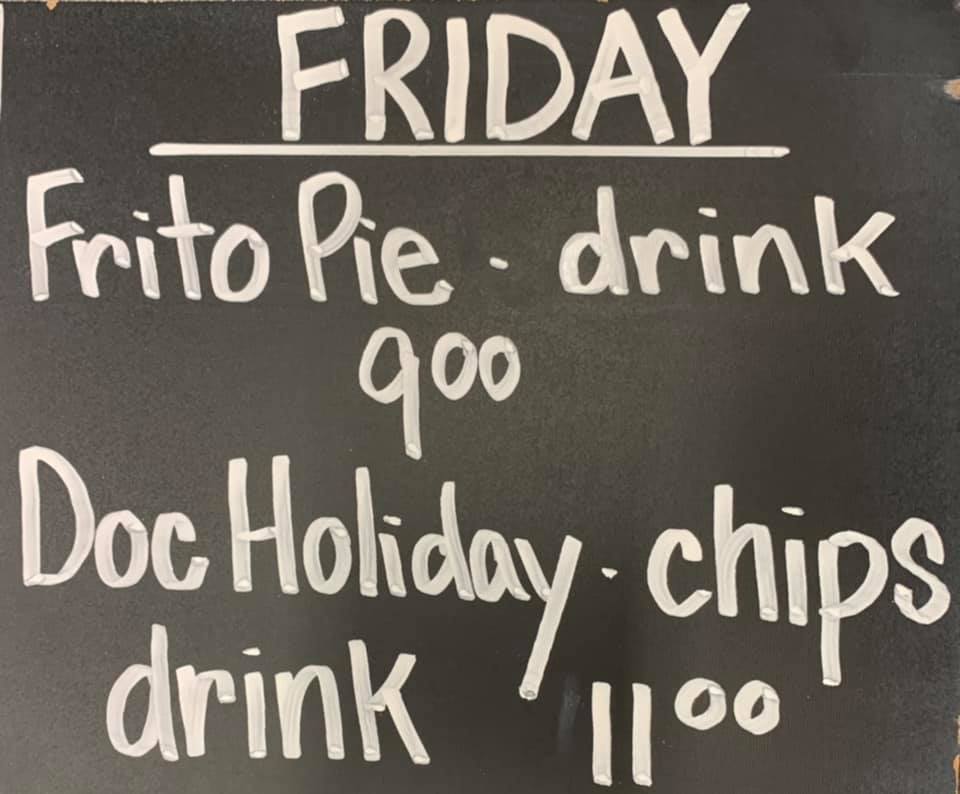 FRIDAY
Frito Pie · drink
9 00
Doc Holiday · chips
drink 11 00